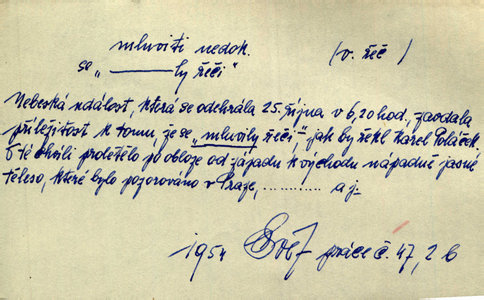 mluviti nedok. (v. řeč)
se „———ly řeči“
Nebeská událost, která se odehrála 25. října v 6,20 hod, zavdala
příležitost k tomu, že se „mluvily řeči“, jak by řekl Karel Poláček.
V té chvíli proletělo po obloze od západu k východu nápadně jasné
těleso, které bylo pozorováno v Praze, ............ a j.
1954 práce č. 47, 2 b